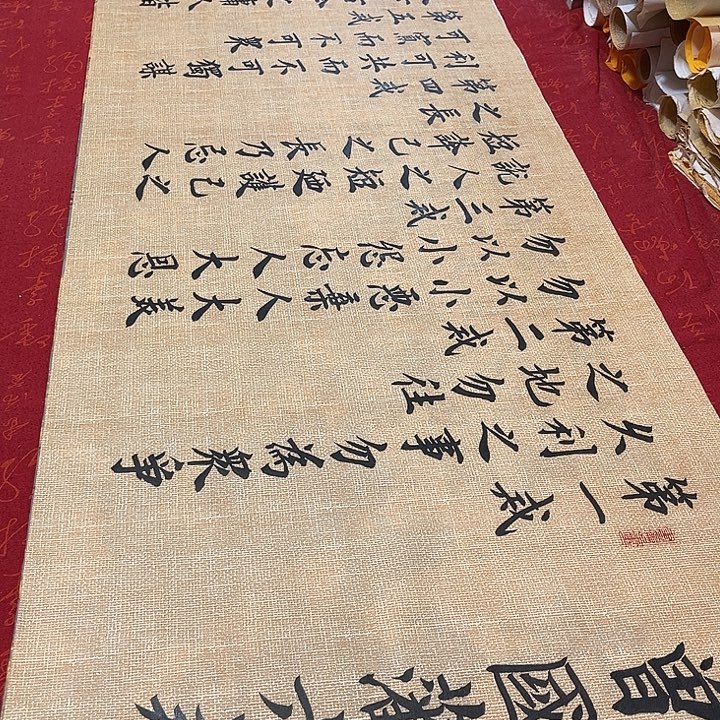 曾國藩六戒
第一戒
久利之事勿為眾爭
之地勿往
第二戒
勿以小惡棄人大義
勿以小怨忘人大恩
第三戒
說人之短廼護己之
短誇己之長乃忌人
之長
第四戒
利可共而不可獨謀
可寡而不可眾
第五戒
庸人皆